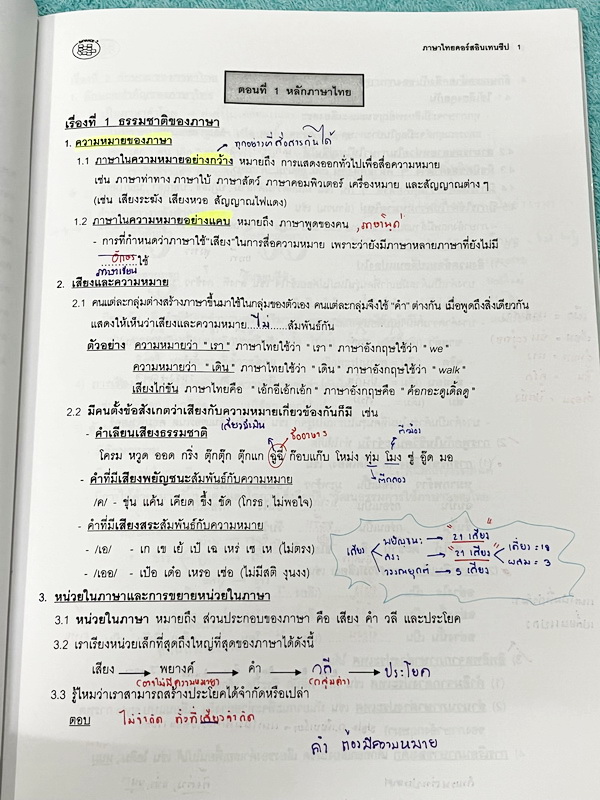 ภาษาไทยคอร์สอินเทนซีป 1
ตอนที่ 1 หลักภาษาไทย
เรื่องที่ 1 ธรรมชาติของภาษา
1. ความหมายของภาษา
ทุกอย่างที่สื่อสารกันได้
1.1 ภาษาในความหมายอย่างกว้าง หมายถึง การแสดงออกทั่วไปเพื่อสื่อความหมาย
เช่น ภาษาท่าทาง ภาษาใบ้ ภาษาสัตว์ ภาษาคอมพิวเตอร์ เครื่องหมาย และสัญญาณต่าง ๆ
(เช่น เสียงระฆัง เสียงหวอ สัญญาณไฟแดง)
1.2 ภาษาในความหมายอย่างแคบ หมายถึง ภาษาพูดของคน
- การที่กำหนดว่าภาษาใช้"เสียง"ในการสื่อความหมาย เพราะว่ายังมีภาษาหลายภาษาที่ยังไม่มี
อักษร ใช้
ภาษาเขียน
2. เสียงและความหมาย
2.1 คนแต่ละกลุ่มต่างสร้างภาษาขึ้นมาใช้ในกลุ่มของตัวเอง คนแต่ละกลุ่มจึงใช้ "คำ" ต่างกัน เมื่อพูดถึงสิ่งเดียวกัน
แสดงให้เห็นว่าเสียงและความหมาย....ไม่......สัมพันธ์กัน
ตัวอย่าง ความหมายว่า " เรา " ภาษาไทยใช้ว่า " เรา " ภาษาอังกฤษใช้ว่า " we "
ความหมายว่า " เดิน " ภาษาไทยใช้ว่า " เดิน " ภาษาอังกฤษใช้ว่า " walk "
เสียงไก่ขัน ภาษาไทยคือ " เอ้กอีเอ้กเอ้ก " ภาษาอังกฤษคือ " ค้อกอะดูเดิ้ลดู "
2.2 มีคนตั้งข้อสังเกตว่าเสียงกับความหมายเกี่ยวข้องกันก็มี เช่น
- คำเลียนเสียงธรรมชาติ ชื่ออาหาร ตีฆ้อง
โครม หวูด ออด กริ่ง ตุ๊กตุ๊ก ตุ๊กแก ฉู่ฉี่ ก๊อบแก๊บ โหม่ง ทุ่ม โมง ซู่ อู๊ด มอ
ตีกลอง
- คำที่มีเสียงพยัญชนะสัมพันธ์กับความหมาย
/ค/ - ขุ่น แค้น เคียด ขึ้ง ขัด (โกรธ , ไม่พอใจ)
- คำที่มีเสียงสระสัมพันธ์กับความหมาย
/เอ/ - เก เข เย้ เป๋ เฉ เหร่ เซ เห (ไม่ตรง)
/เออ/ - เป๋อ เด๋อ เหรอ เซ่อ (ไม่มีสติ งุนงง)
เสียง
พยัญชนะ → "21 เสียง"
สระ → "21 เสียง" เดี่ยว = 18
ผสม = 3
วรรณยุกต์ → 5 เสียง
3. หน่วยในภาษาและการขยายหน่วยในภาษา
3.1 หน่วยในภาษา หมายถึง ส่วนประกอบของภาษา คือ เสียง คำ วลี และประโยค
3.2 เราเรียงหน่วยเล็กที่สุดถึงใหญ่ที่สุดของภาษาได้ดังนี้
เสียง → พยางค์ → คำ → วลี → ประโยค
(อาจไม่มีความหมาย) (กลุ่มคำ)
3.3 รู้ไหมว่าเราสามารถสร้างประโยคได้จำกัดหรือเปล่า
ตอบ ไม่จำกัด ทั้งที่เสียงจำกัด
คำ ต้องมีความหมาย